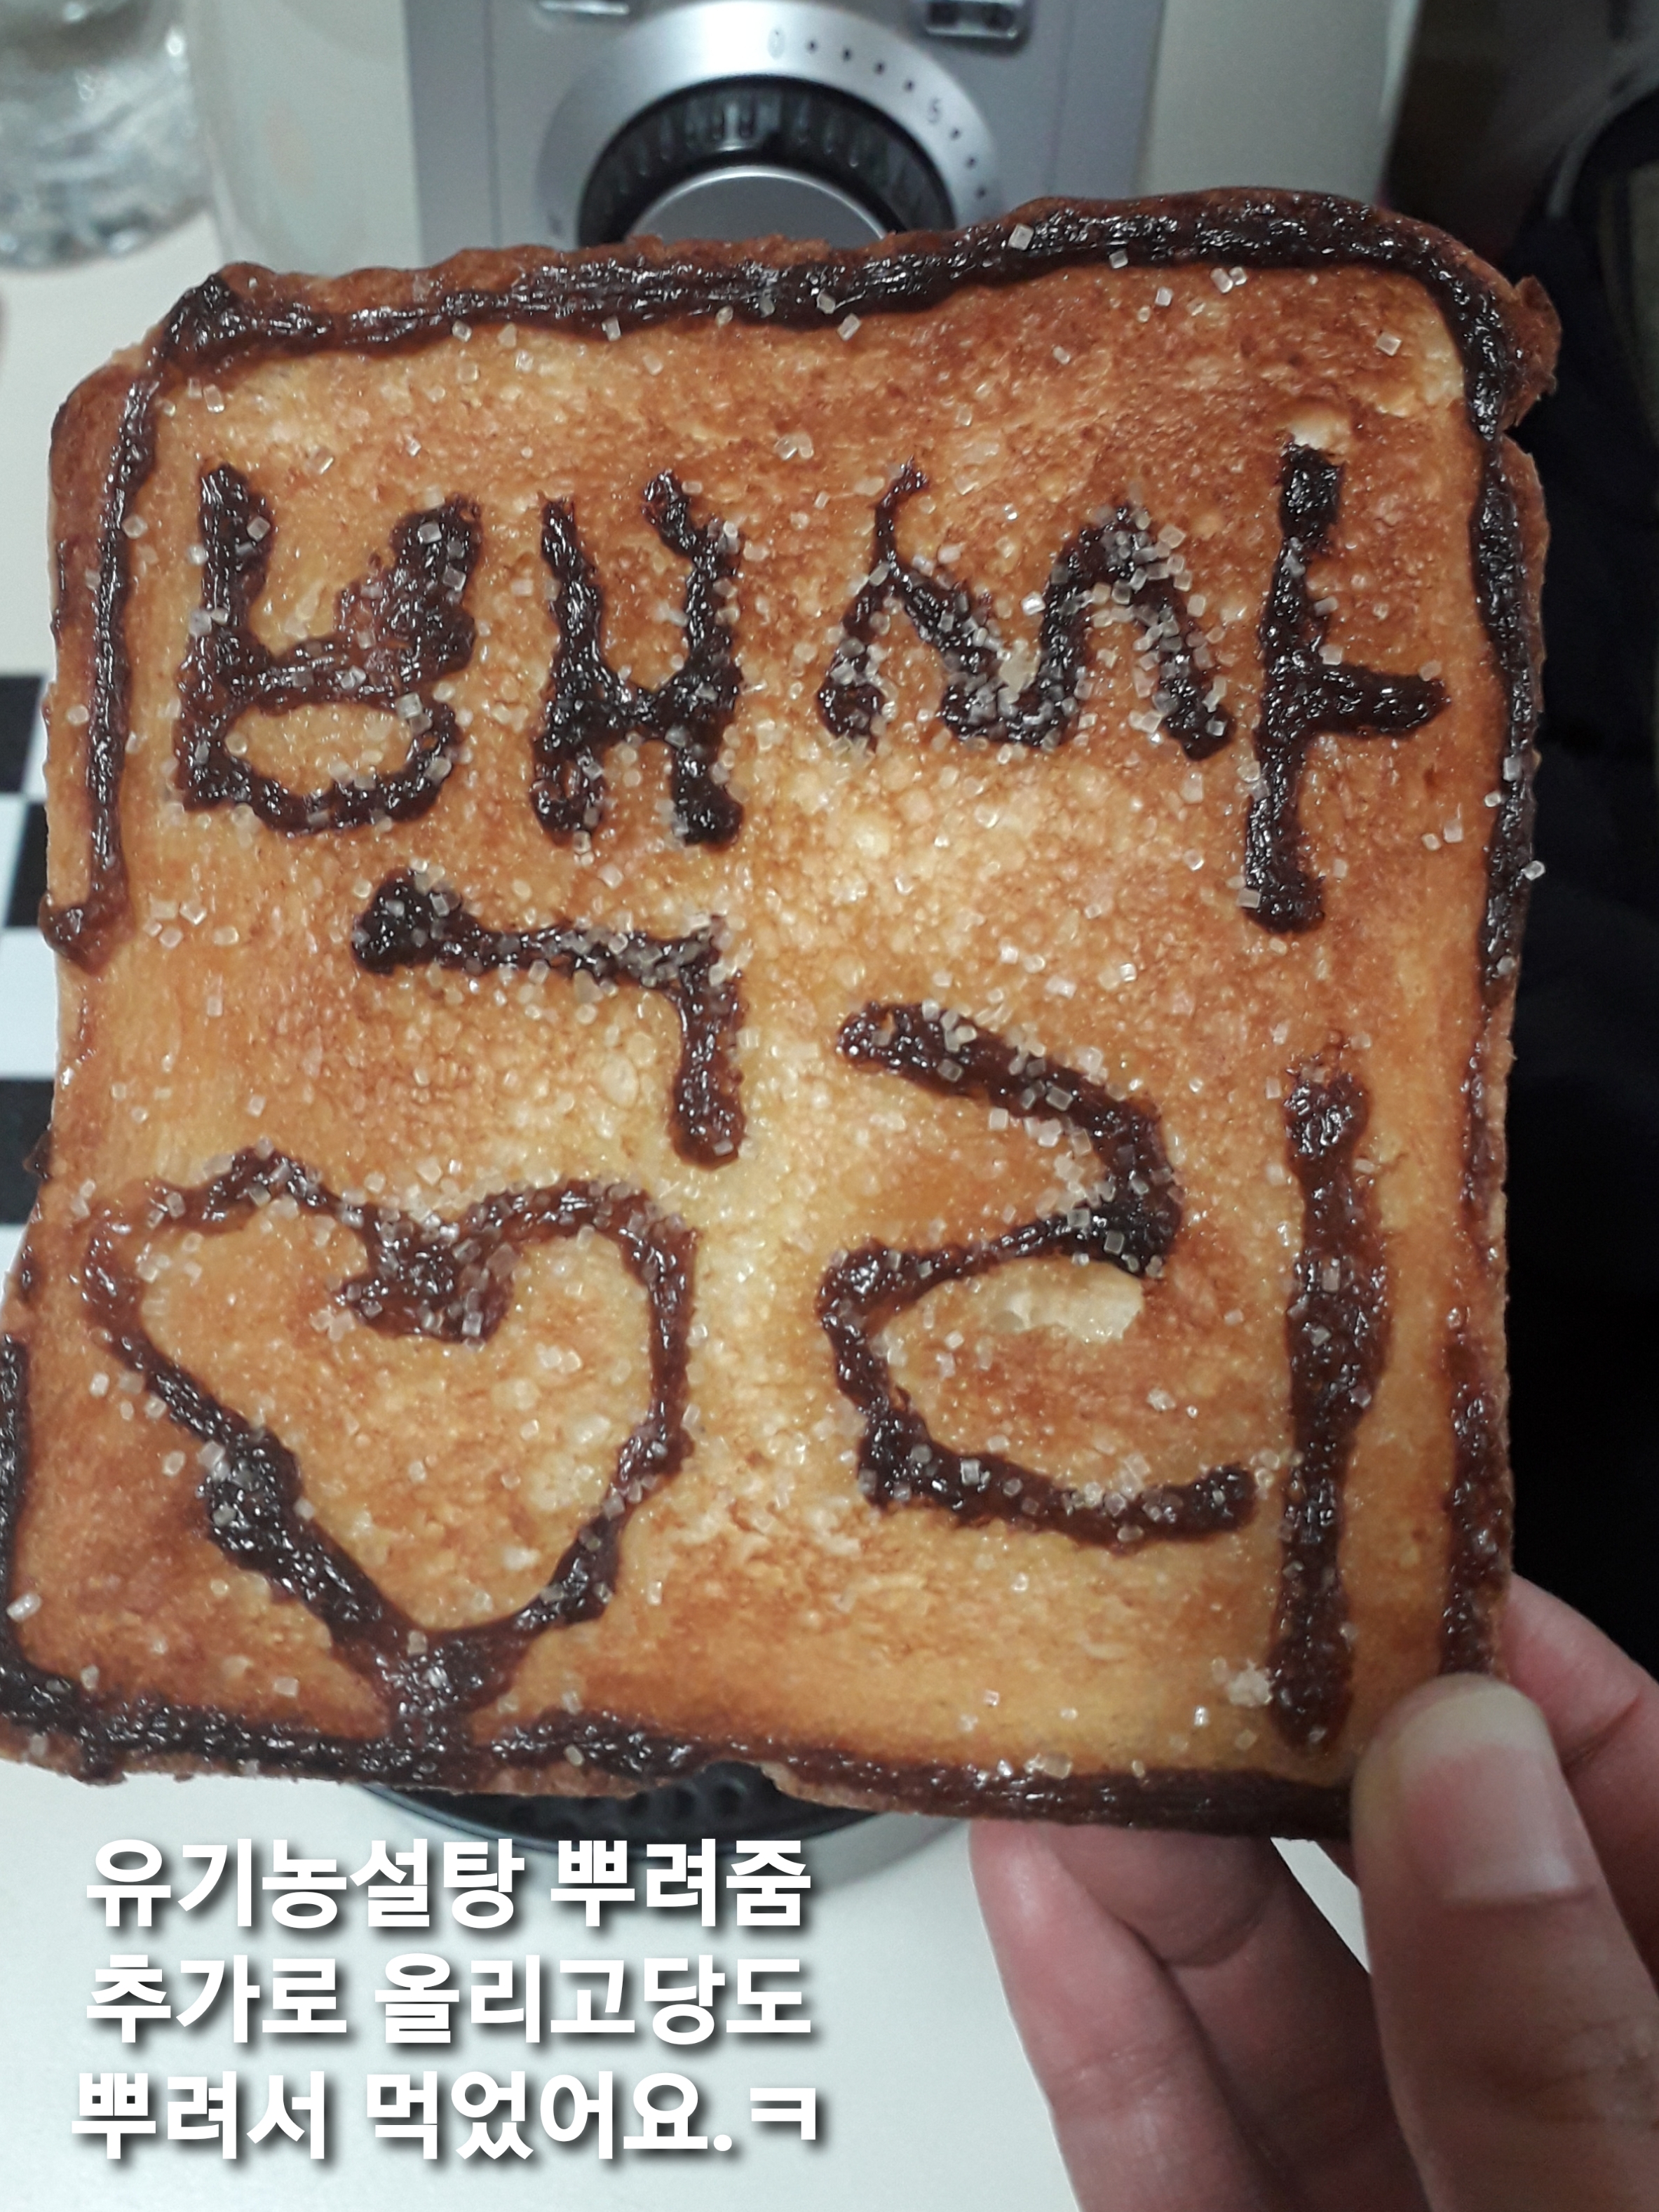 백싸
♡리
유기농설탕 뿌려줌
추가로 올리고당도
뿌려서 먹었어요.ㅋ